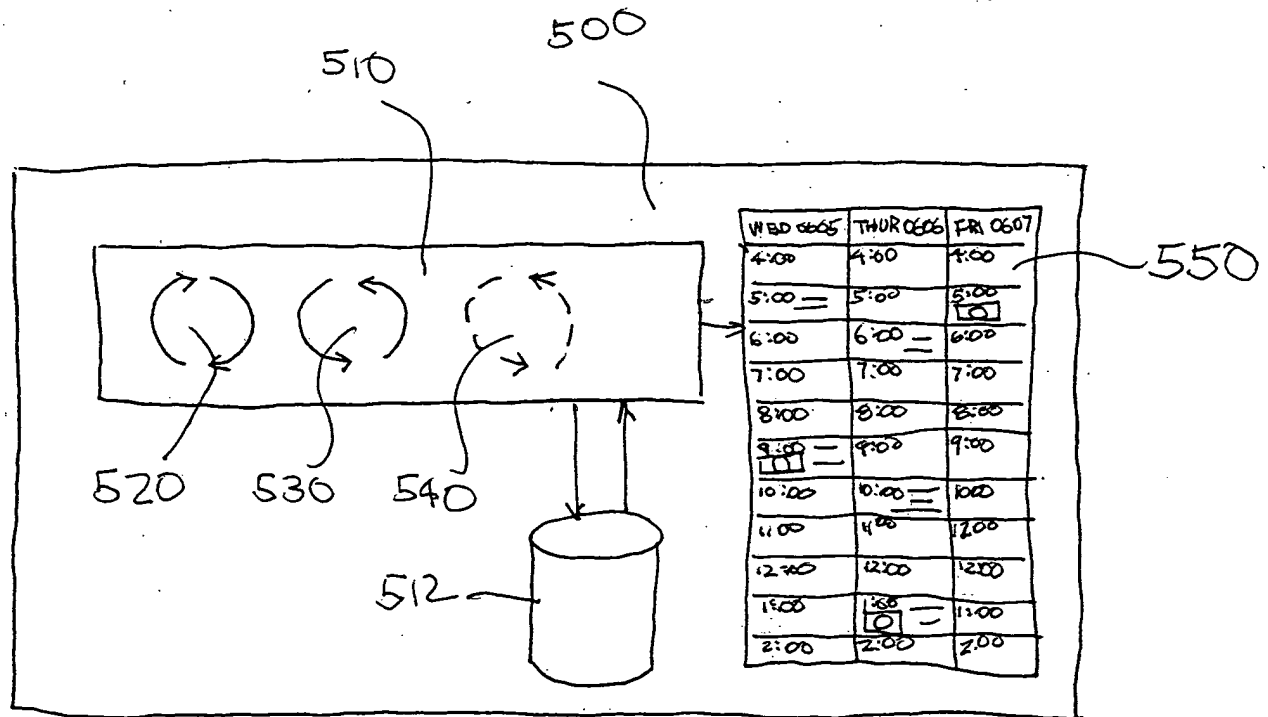 500
510
WED 0605 THUR 0606 FRI 0607
4:00 4:00 4:00
550
5:00 5:00 5:00
6:00 6:00 6:00
7:00 7:00 7:00
8:00 8:00 8:00
9:00 9:00 9:00
520 530 540
10:00 10:00 1000
11:00 11:00 1200
12:00 12:00 12:00
512
1:00 1:00 1:00
2:00 2:00 2:00